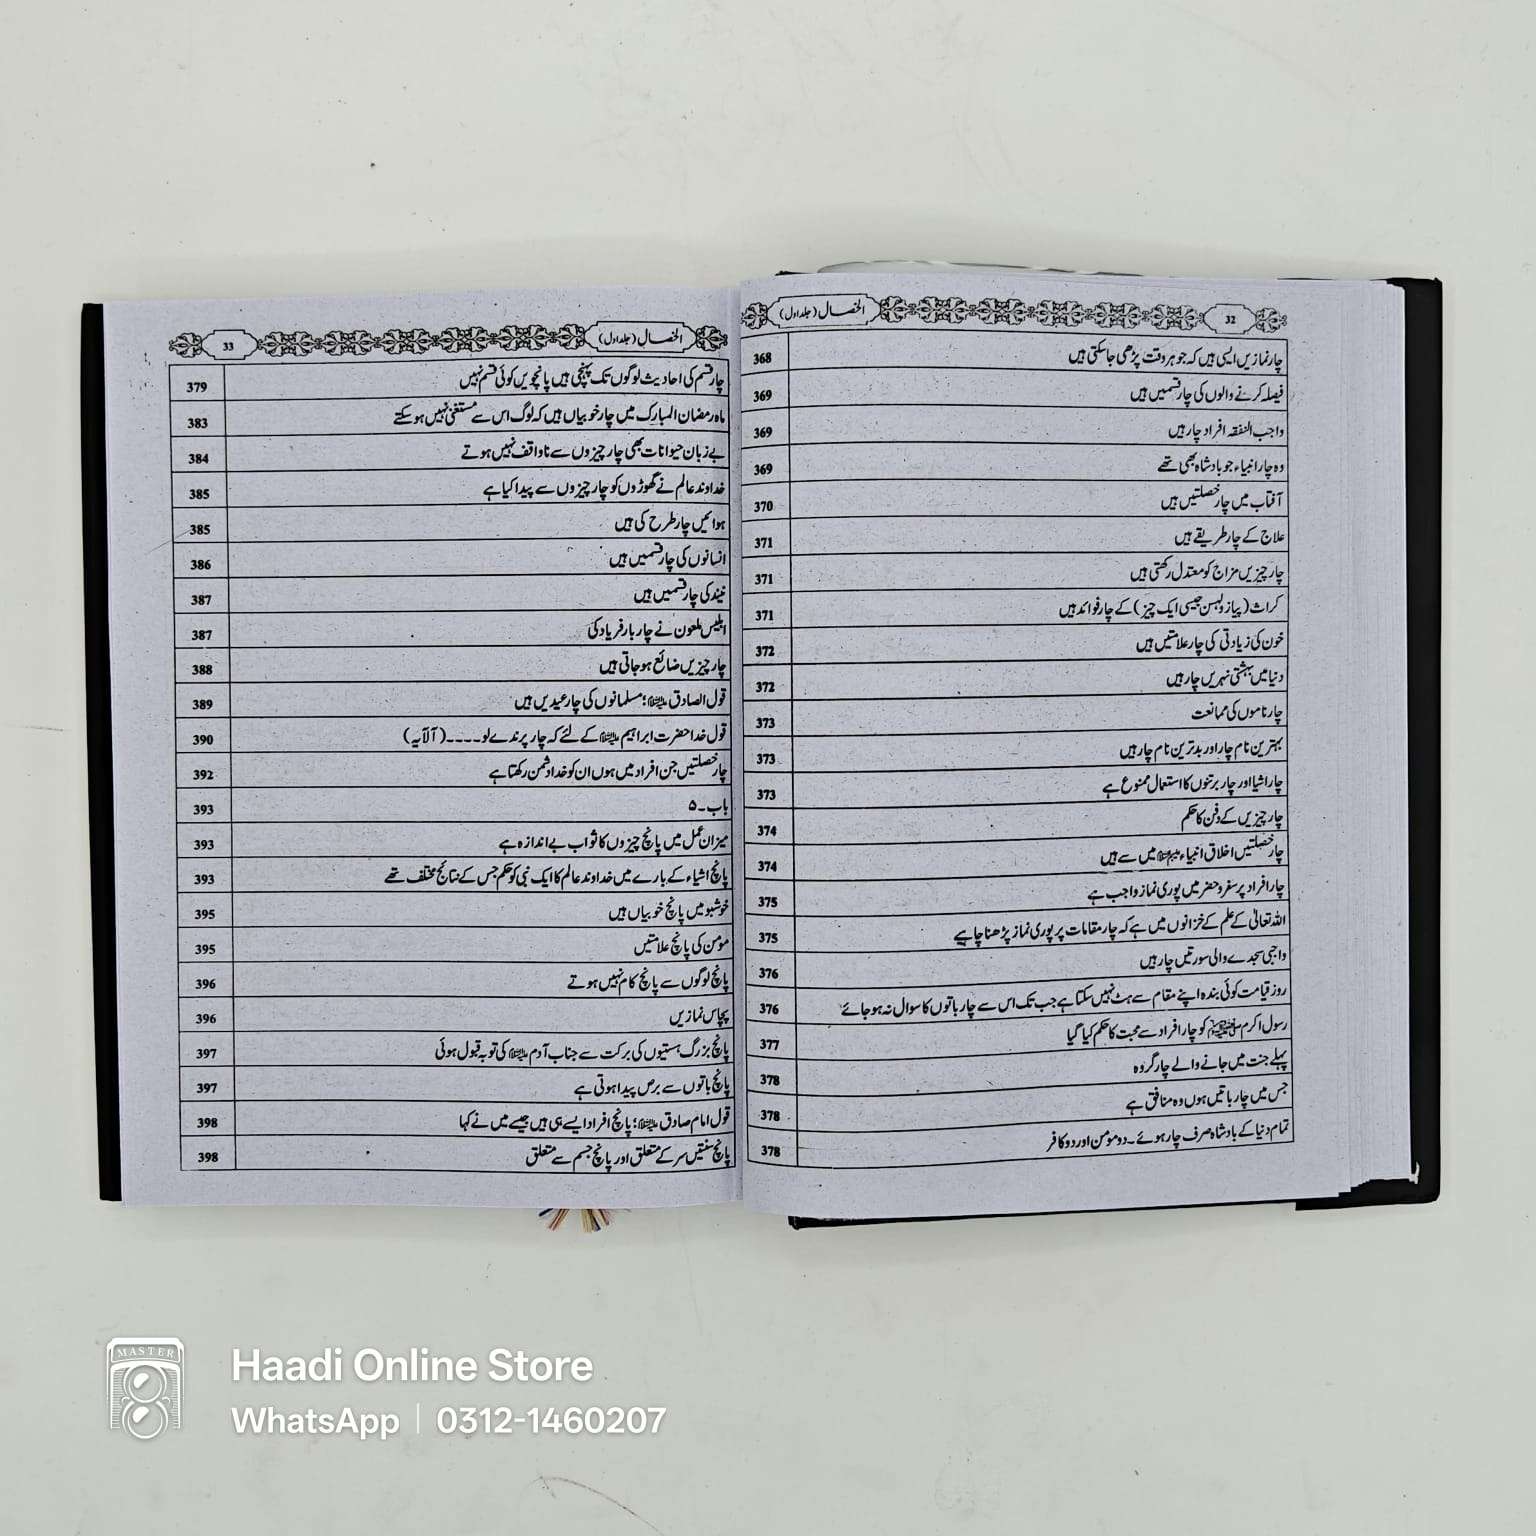 32
الخصال (جلد اول)
چار نمازیں ایسی ہیں کہ جو ہر وقت پڑھی جاسکتی ہیں 368
فیصلہ کرنے والوں کی چار قسمیں ہیں 369
واجب النفقہ افراد چار ہیں 369
وہ چار انبیاء جو بادشاہ بھی تھے 369
آفتاب میں چار خصلتیں ہیں 370
علاج کے چار طریقے ہیں 371
چار چیزیں مزاج کو معتدل رکھتی ہیں 371
کراث (پیاز و لہسن جیسی ایک چیز) کے چار فوائد ہیں 371
خون کی زیادتی کی چار علامتیں ہیں 372
دنیا میں بہشتی نہریں چار ہیں 372
چار ناموں کی ممانعت 373
بہترین نام چار اور بدترین نام چار ہیں 373
چار اشیا اور چار برتنوں کا استعمال ممنوع ہے 373
چار چیزیں کے دفن کا حکم 374
چار خصلتیں اخلاق انبیاء میں سے ہیں 374
چار افراد پر سفر و حضر میں پوری نماز واجب ہے 375
اللہ تعالیٰ کے علم کے خزانوں میں ہے کہ چار مقامات پر پوری نماز پڑھنا چاہیے 375
واجبی سجدے والی سورتیں چار ہیں 376
روز قیامت کوئی بندہ اپنے مقام سے ہٹ نہیں سکتا ہے جب تک اس سے چار باتوں کا سوال نہ ہو جائے 376
رسول اکرم ﷺ کو چار افراد سے محبت کا حکم کیا گیا 377
پہلے جنت میں جانے والے چار گروہ 378
جس میں چار باتیں ہوں وہ منافق ہے 378
تمام دنیا کے بادشاہ صرف چار ہوئے۔ دو مومن اور دو کافر 378
الخصال (جلد اول)
33
چار قسم کی احادیث لوگوں تک پہنچی ہیں پانچویں کوئی قسم نہیں 379
ماہ رمضان المبارک میں چار خوبیاں ہیں کہ لوگ اس سے مستغنی نہیں ہو سکتے 383
بے زبان حیوانات بھی چار چیزوں سے ناواقف نہیں ہوتے 384
خداوند عالم نے گھوڑوں کو چار چیزوں سے پیدا کیا ہے 385
ہوائیں چار طرح کی ہیں 385
انسانوں کی چار قسمیں ہیں 386
نیند کی چار قسمیں ہیں 387
ابلیس ملعون نے چار بار فریاد کی 387
چار چیزیں ضائع ہو جاتی ہیں 388
قول الصادق علیہ السلام؛ مسلمانوں کی چار عیدیں ہیں 389
قول خدا حضرت ابراہیم علیہ السلام کے لئے کہ چار پرندے لو۔۔۔۔ (آلآیہ) 390
چار خصلتیں جن افراد میں ہوں ان کو خدا دشمن رکھتا ہے 392
باب۔۵ 393
میزان عمل میں پانچ چیزوں کا ثواب بے اندازہ ہے 393
پانچ اشیاء کے بارے میں خداوند عالم کا ایک نبی کو حکم جس کے نتائج مختلف تھے 393
خوشبو میں پانچ خوبیاں ہیں 395
مومن کی پانچ علامتیں 395
پانچ لوگوں سے پانچ کام نہیں ہوتے 396
پچاس نمازیں 396
پانچ بزرگ ہستیوں کی برکت سے جناب آدم علیہ السلام کی توبہ قبول ہوئی 397
پانچ باتوں سے برص پیدا ہوتی ہے 397
قول امام صادق علیہ السلام؛ پانچ افراد ایسے ہی ہیں جیسے میں نے کہا 398
پانچ سنتیں سر کے متعلق اور پانچ جسم سے متعلق 398
MASTER
Haadi Online Store
WhatsApp | 0312-1460207